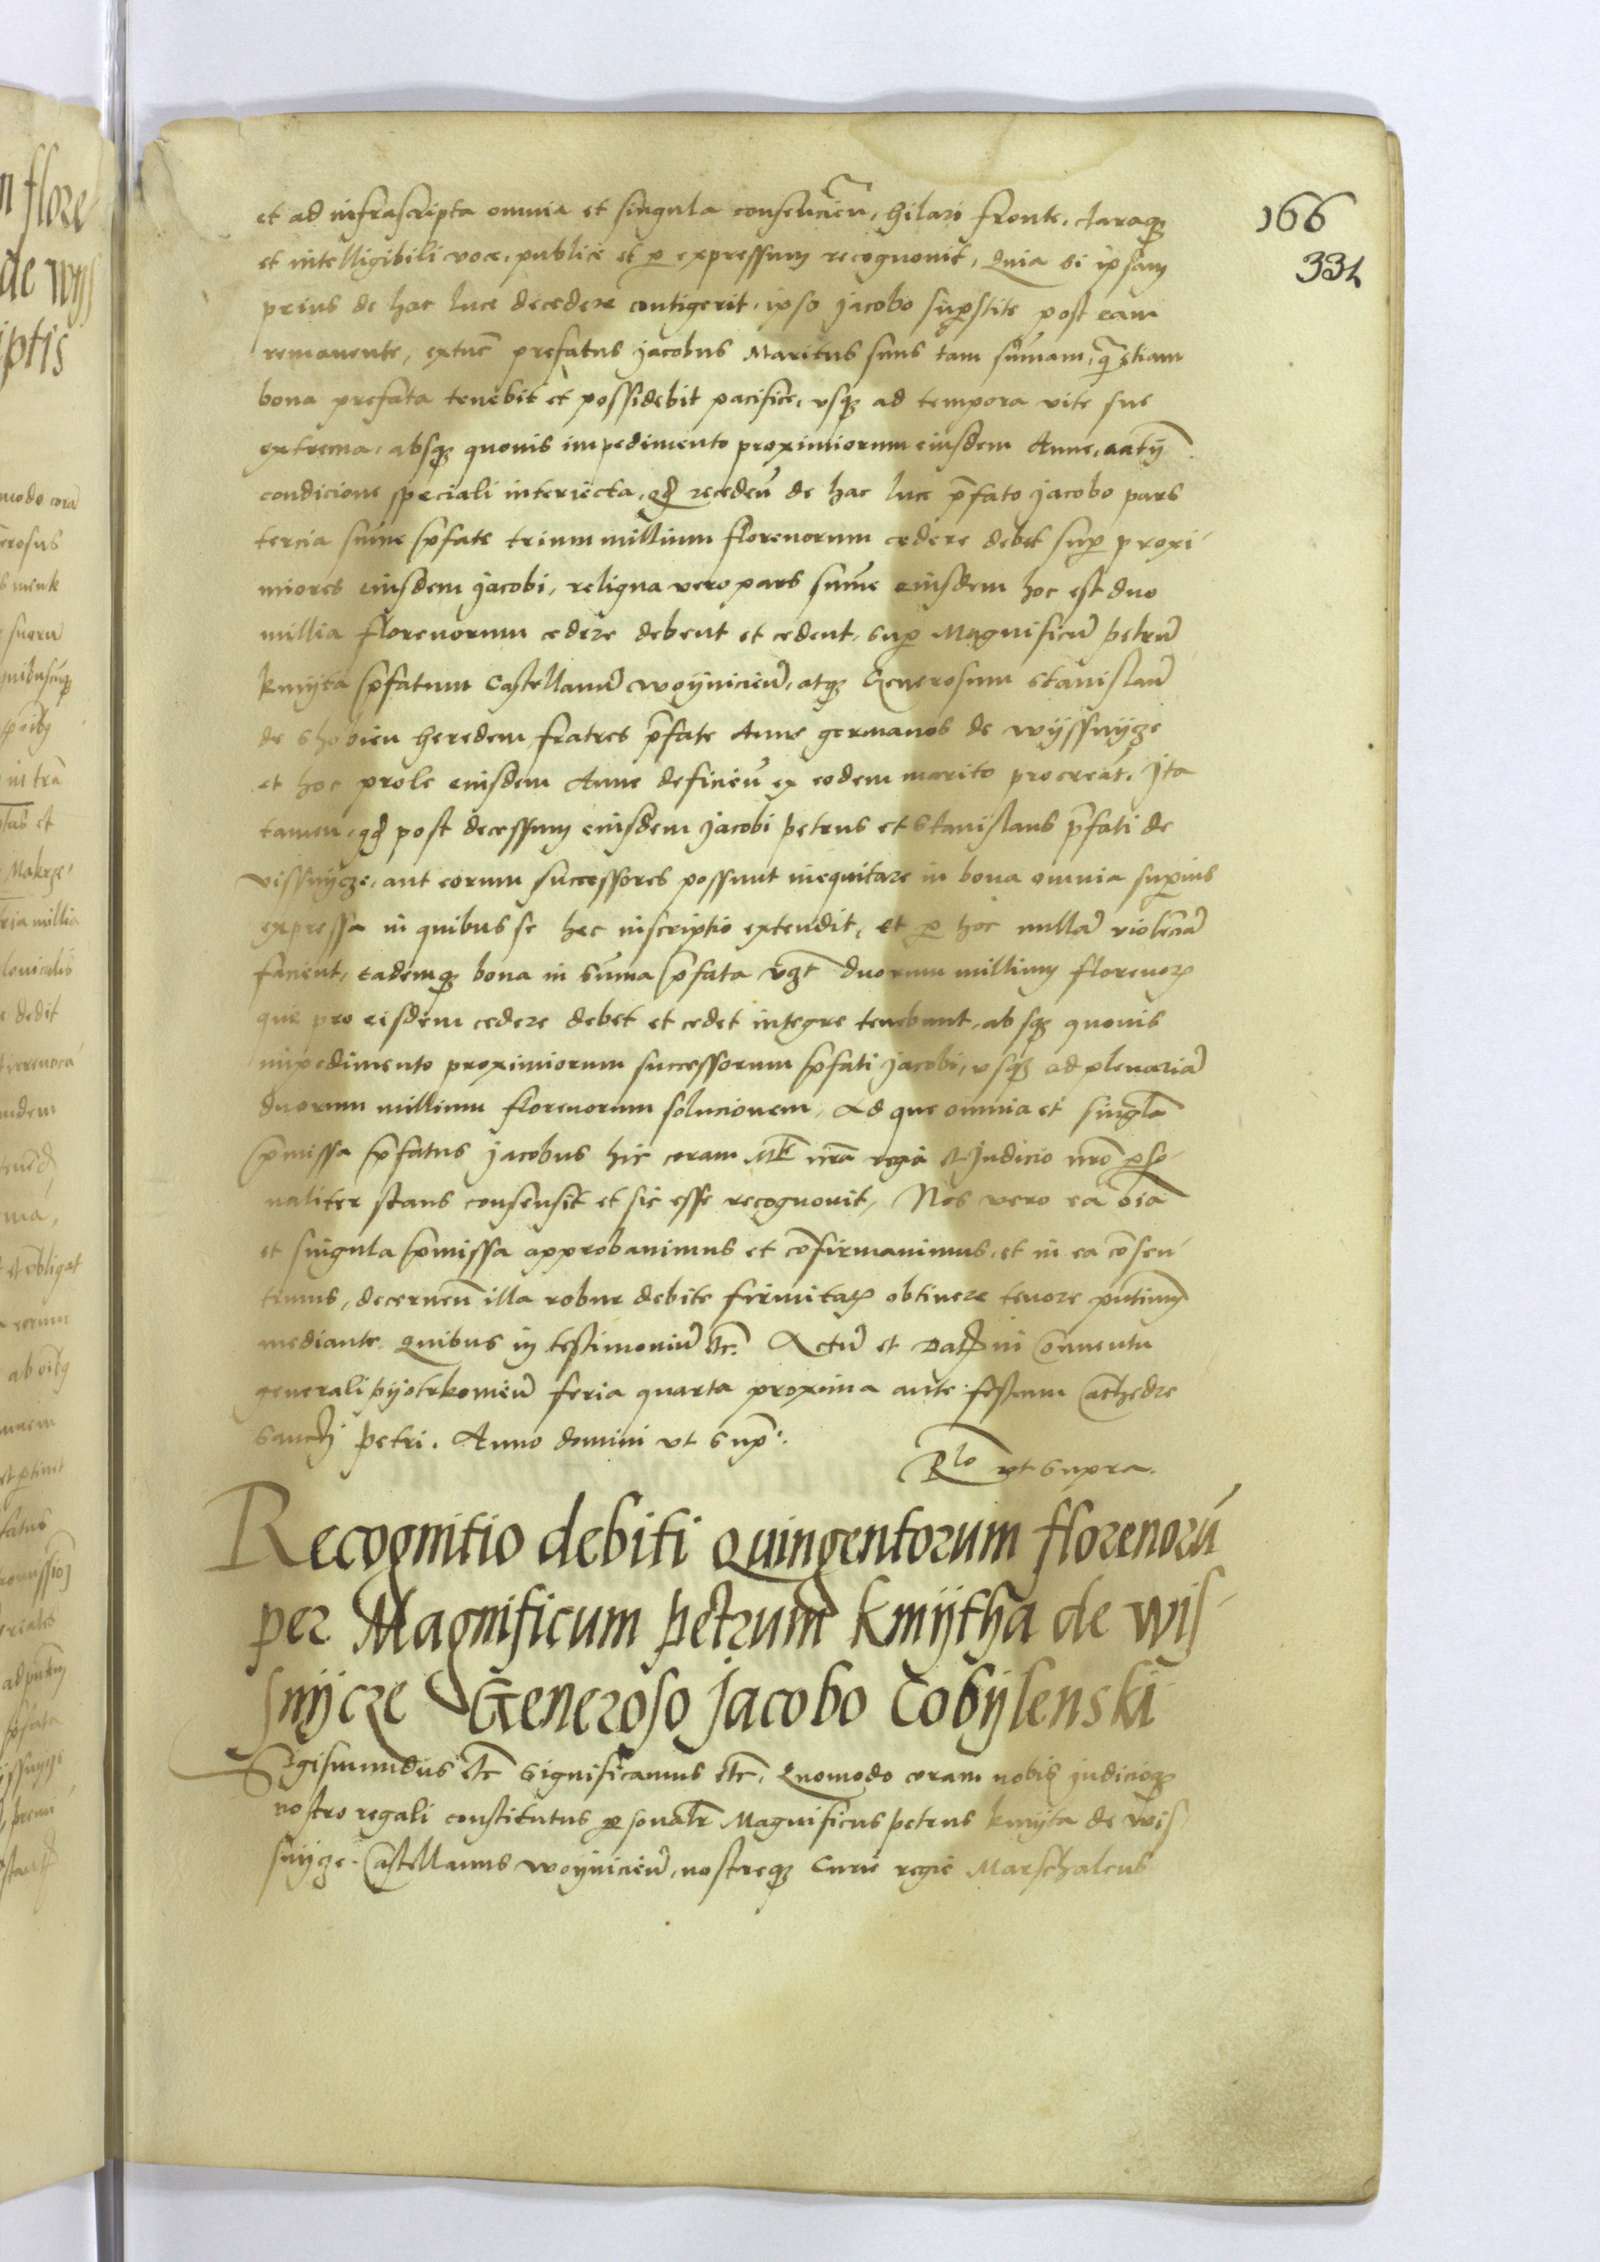 166
331
et ad infrascripta omnia et singula consencien̄, hilari fronte, claraqʒ
et intelligibili voce, publice et p̱ expressum recognovit, Quia si ipsam
prius de hac luce decedere contigerit, ipso jacobo sup̱stite post eam
remanente, extunc prefatus jacobus Maritus suus tam sūmam, q̄ etiam
bona prefata tenebit et possidebit pacifice, vsqʒ ad tempora vite sue
extrema, absqʒ quovis impedimento proximiorum eiusdem Anne,
condicione speciali interiecta, qd̄ receden̄ de hac luce p̄fato jacobo pars
tercia sūme p̄fate trium millium florenorum cedere debet sup̱ proxi
miores eiusdem jacobi, reliqua vero pars sūme eiusdem hoc est duo
millia florenorum cedere debent et cedent, sup̱ Magnificū petrū
kmyta p̄fatum Castellanū woyniciēn̄, atqʒ Generosum Stanislaū
de heredem, fratres p̄fate Anne germanos de wyssnycze
et hoc prole eiusdem Anne deficien̄ ex eodem marito procreat̄, Ita
tamen, qd̄ post decessum eiusdem jacobi petrus et Stanislaus p̄fati de
vissnycze, aut eorum successores possunt inequitare in bona omnia sup̱ius
expressa in quibus se hec inscriptio extendit, et p̱ hoc nullā violēciā
facient, eademqʒ bona in sūma p̄fata vʒt duorum millium florenoꝝ
que pro eisdem cedere debet et cedet integre tenebunt, absqʒ quovis
impedimento proximiorum successorum p̄fati jacobi, vsqʒ ad plenariā
duorum millium florenorum solucionem, Ad que omnia et singl̄a
p̄missa p̄fatus jacobus hic coram Mte nr̄a regia et Judicio nr̄o p̱so
naliter stans consensit et sic esse recognovit, Nos vero ea oīa
et singula p̄missa approbavimus et cōfirmavimus, et in ea cōsen
timus, decernen̄ illa robur debite firmitatꝭ obtinere tenore pn̄tium
mediante. Quibus in testimoniū etc̄. Actū et Datꝭ in Conventu
generali pyotrkowien̄ feria quarta proxima ante festum Cathedre
Sancti petri. Anno domini vt sup̱.
Rlo vt supra.
Recognitio debiti Quingentorum florenorū
per Magnificum petrum Kmytha de wis
snycze Generoso Jacobo Cobylenski
Sigismundus etc̄ Significamus etc̄, Quomodo coram nobis judicioqʒ
nostro regali constitutus p̱sonalr̄ Magnificus petrus kmyta de wis
snycze Castellanus woynicien̄, nostreqʒ Curie regie Marschalcus